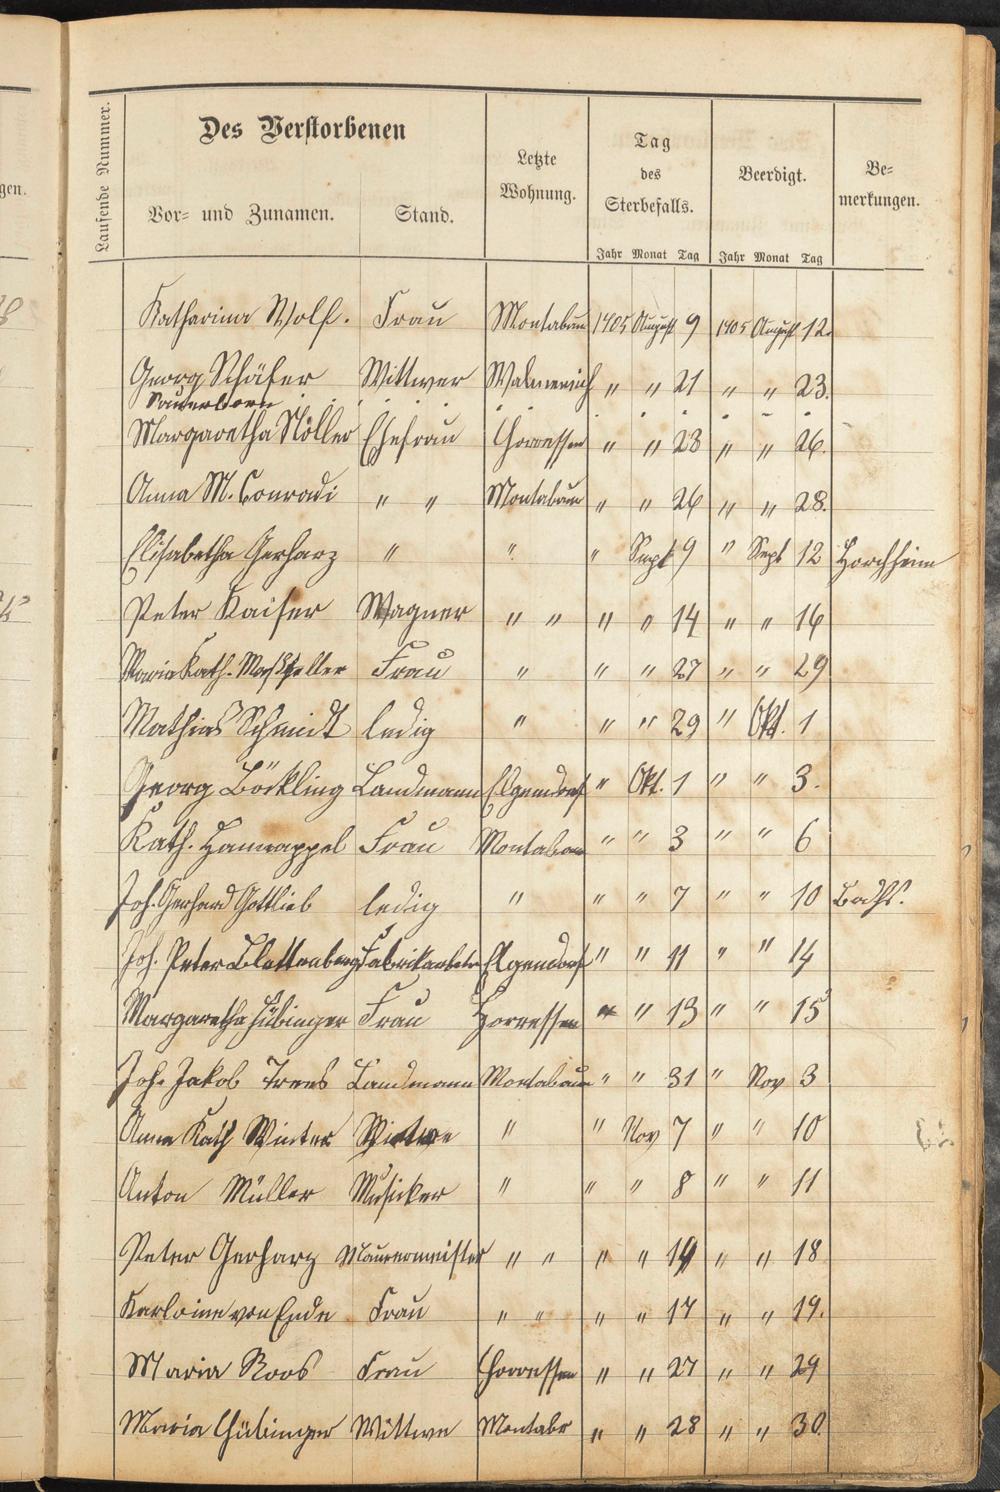 gen.
Laufende Nummer.
Des Verstorbenen
Vor- und Zunamen.
Stand.
Letzte
Wohnung.
Tag
des
Sterbefalls.
Beerdigt.
Be-
merkungen.
Jahr Monat Tag Jahr Monat Tag
Katharina Wolf. Frau Montabaur 1905 August 9 1905 August 12.
Georg Schäfer Wittwer Walmeneich " " 21 " " 23.
Sauerborn
Margaretha Nöller Ehefrau Horressen " " 23 " " 26.
Anna M. Conradi " " Montabaur " " 26 " " 28.
Elisabetha Gerharz " " " Sept 9 " Sept 12 Horchheim
Peter Kaiser Wagner " " " " 14 " " 16
Maria Kath. Frau " " " 27 " " 29
Mathias Schmidt ledig " " " 29 " Okt. 1
Georg Böckling Landmann Elgendorf " Okt. 1 " " 3.
Kath. Hannappel Frau Montabaur " " 3 " " 6
Joh. Gerhard Gottlieb ledig " " " 7 " " 10
Joh. Peter Blettenberg Fabrikarbeiter Elgendorf " " 11 " " 14
Margaretha Hübinger Frau Horressen " " 13 " " 15
Joh. Jakob Trees Landmann Montabaur " " 31 " Nov 3
Anna Kath Winter Wittwe " " Nov 7 " " 10
Anton Müller Musicker " " " 8 " " 11
Peter Gerharz Maurermeister " " " " 14 " " 18
Karloine von Ende Frau " " " " 17 " " 19.
Maria Roos Frau Horressen " " 27 " " 29
Maria Hübinger Wittwe Montabr " " 28 " " 30.